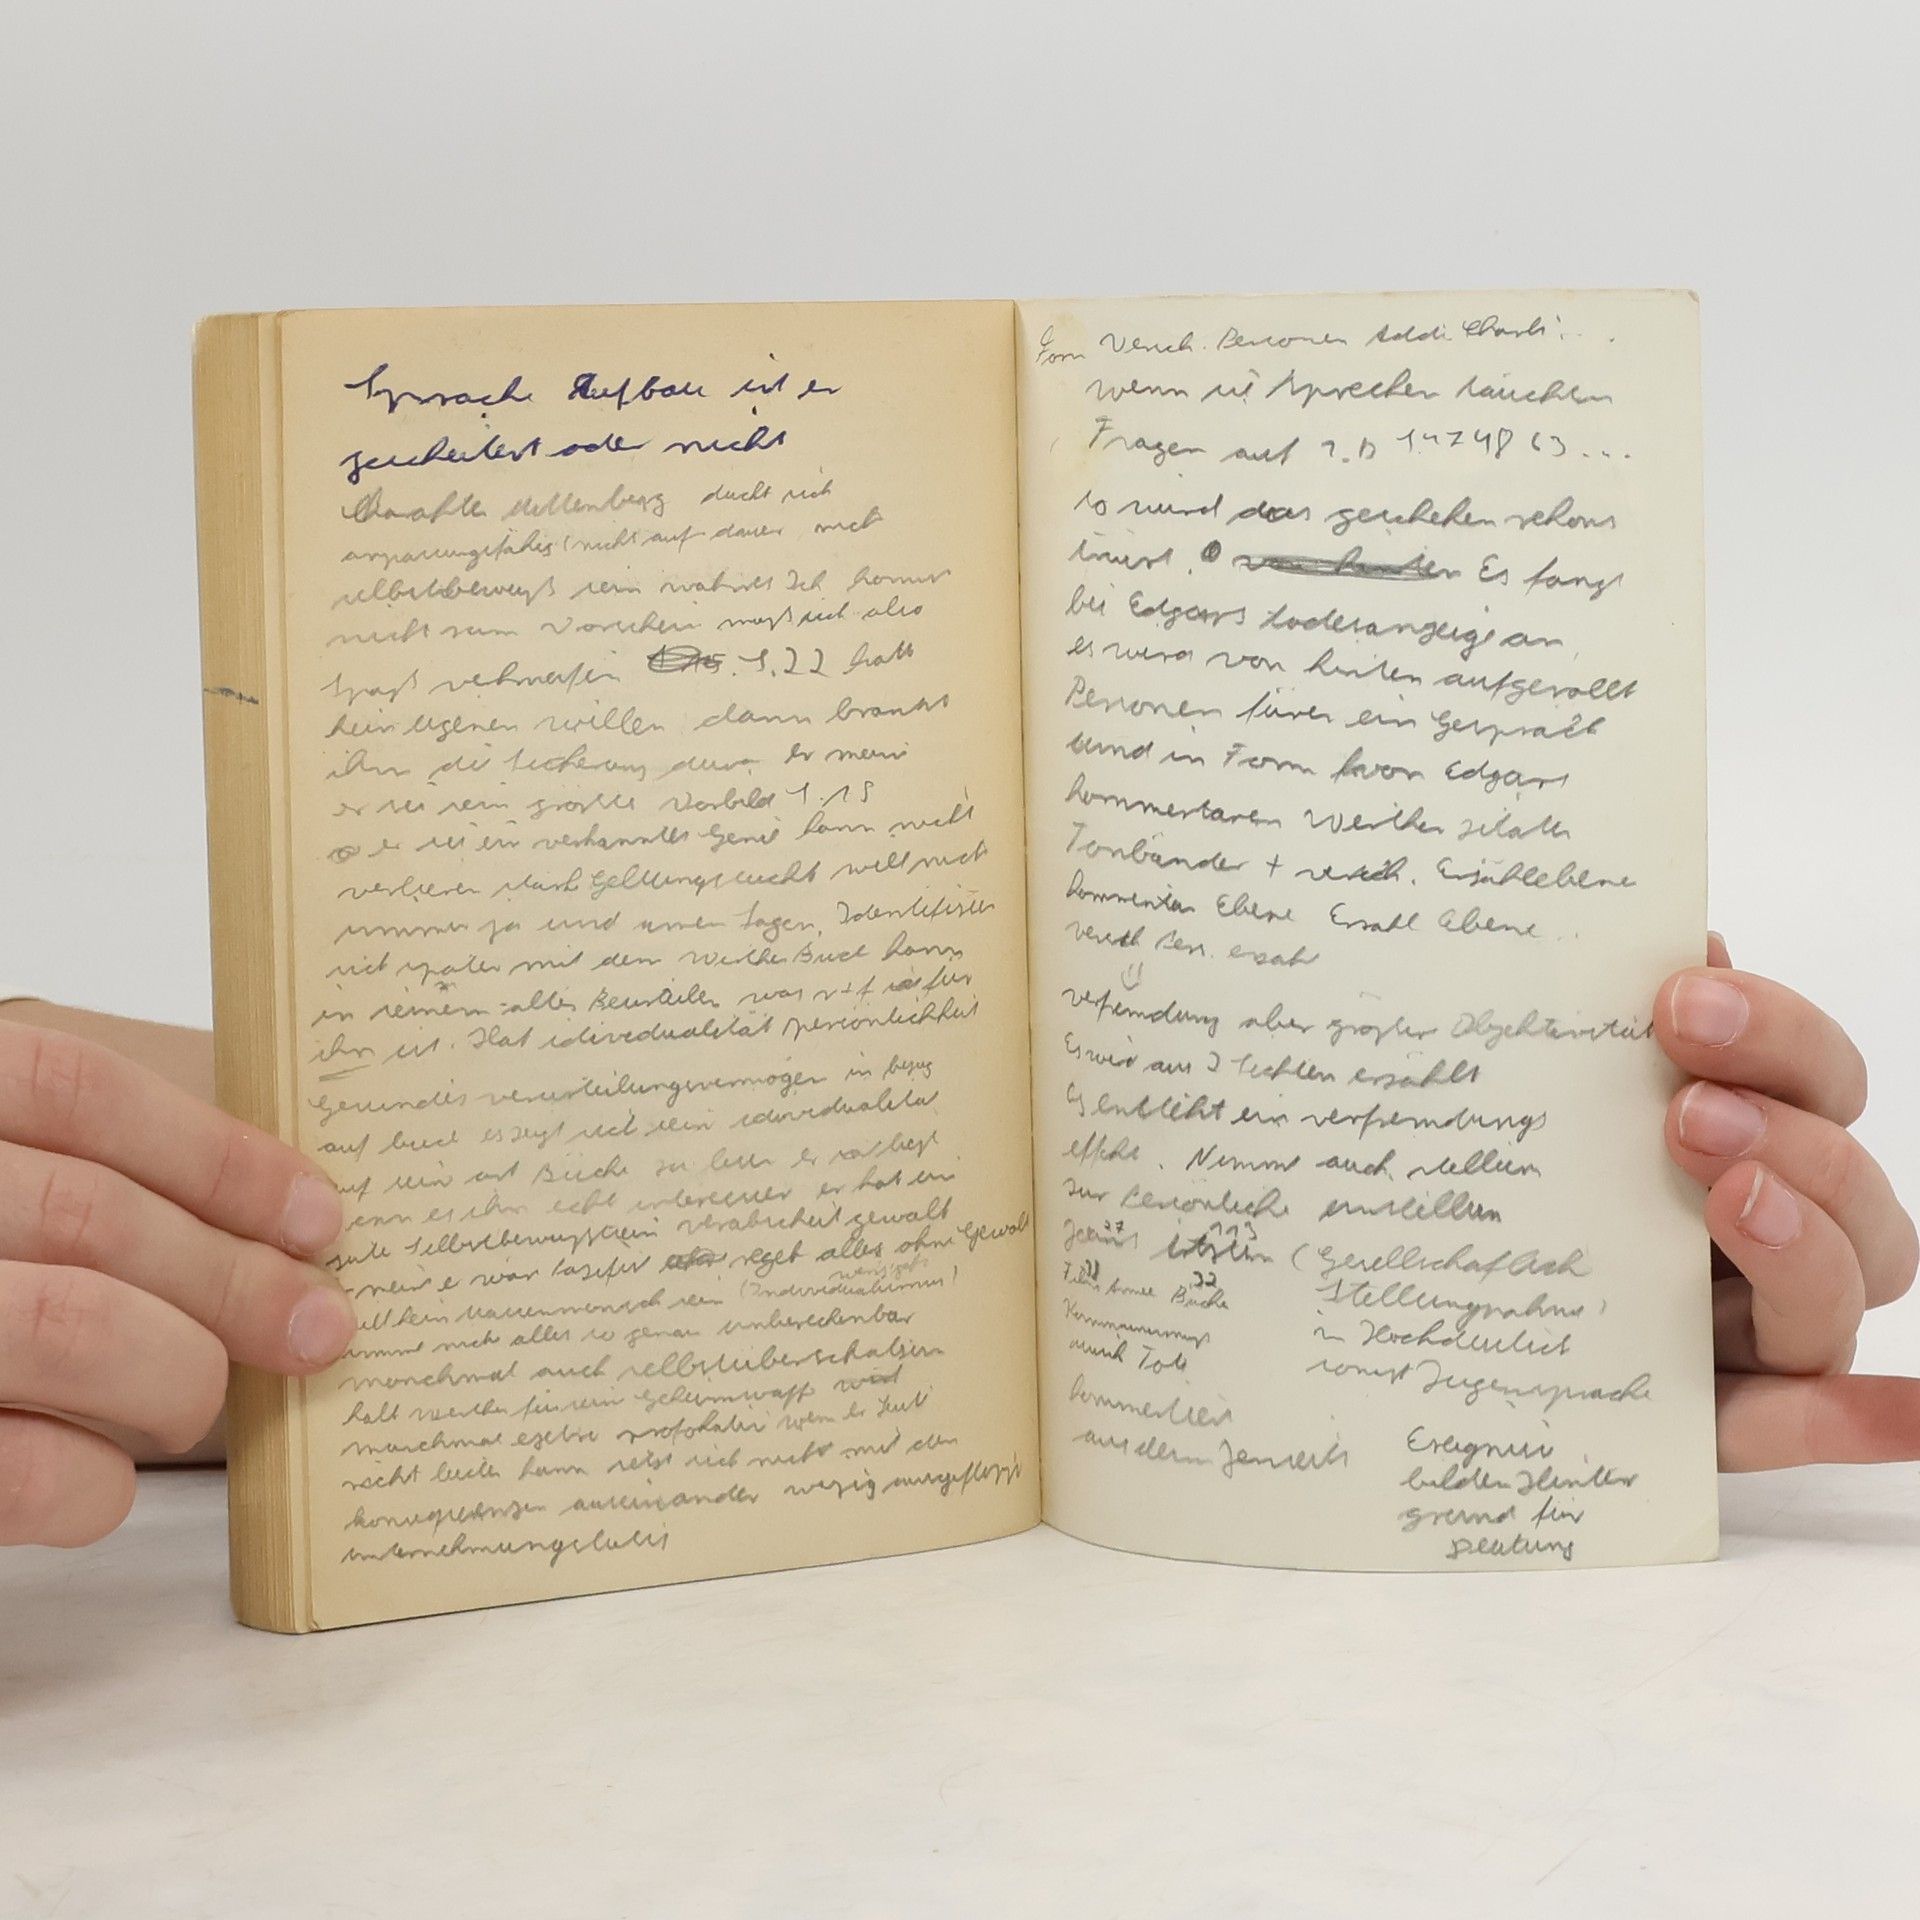 Sprache Aufbau ist er
gescheitert oder nicht
duckt sich
nicht auf dauer nicht
selbstbewußt sein wahres Ich kommt
nicht zum Vorschein muß sich also
Spaß S. 22 hatt
kein eigenen willen dann braucht
ihn er mein
er sei sein größte Vorbild S. 15
er sei ein verkanntes Genie kann nicht
verlieren stark Geltungssucht will nicht
immer ja und amen sagen. Identifiziert
sich später mit dem Werther Buch kann
in seinem alles Beurteilen was für
ihn ist. Hat idividualität persönlichkeit
Gesundes verurteilungsvermögen in bezug
auf buch es zeigt sich sein idividualität
auf sein art Büche zu lesen er liest
wenn es ihn echt interessier er hat ein
gute Selbstbewußtsein verabscheut gewalt
er war lasefir reget alles ohne Gewalt
will kein massenmensch sein (Individualismus)
nimmt nicht alles so genau unberechenbar
manchmal auch selbstüberschatzen
halt werther für sein Geheimwaffe
manchmal wenn er Leut
nicht leiden kann setzt sich nicht mit den
konsequenzen auseinander wenig ausgeflippt
unternehmungslustig
Form Versch. Personen Addi Charli . . .
wenn sie sprechen tauchen
Fragen auf z.B 14 24 48 63 ...
so wird das geschehen rekons
truiert. Es fangt
bei Edgars todesanzeige an.
es wird von hinten aufgerollt
Personen füren ein Gespräch
und in Form von Edgars
kommentaren Werther zitate
Tonbänder + versch. Erzählebene
kommentar Ebene Erzahl Ebene ..
versch Pers. erzahl
verfemdung aber großer Objektivität
Es wird aus 3 Sichten erzählt
Es entsteht ein verfremdungs
effekt. Nimmt auch stellung
zur Persönliche einstellen
Jeans 27 113 (Gesellschaflich
Film Armee Büche 32 Stellungnahme)
in Hochdeutsch
durch Tod sonst Jugensprache
kommentiert
aus dem Jenseits Ereignis
bilden Hinter
grund für
Deutung